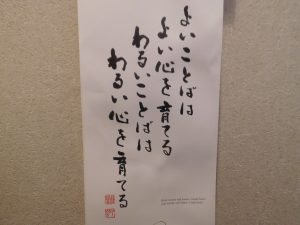 よいことばは
よい心を育てる
わるいことばは
わるい心を育てる